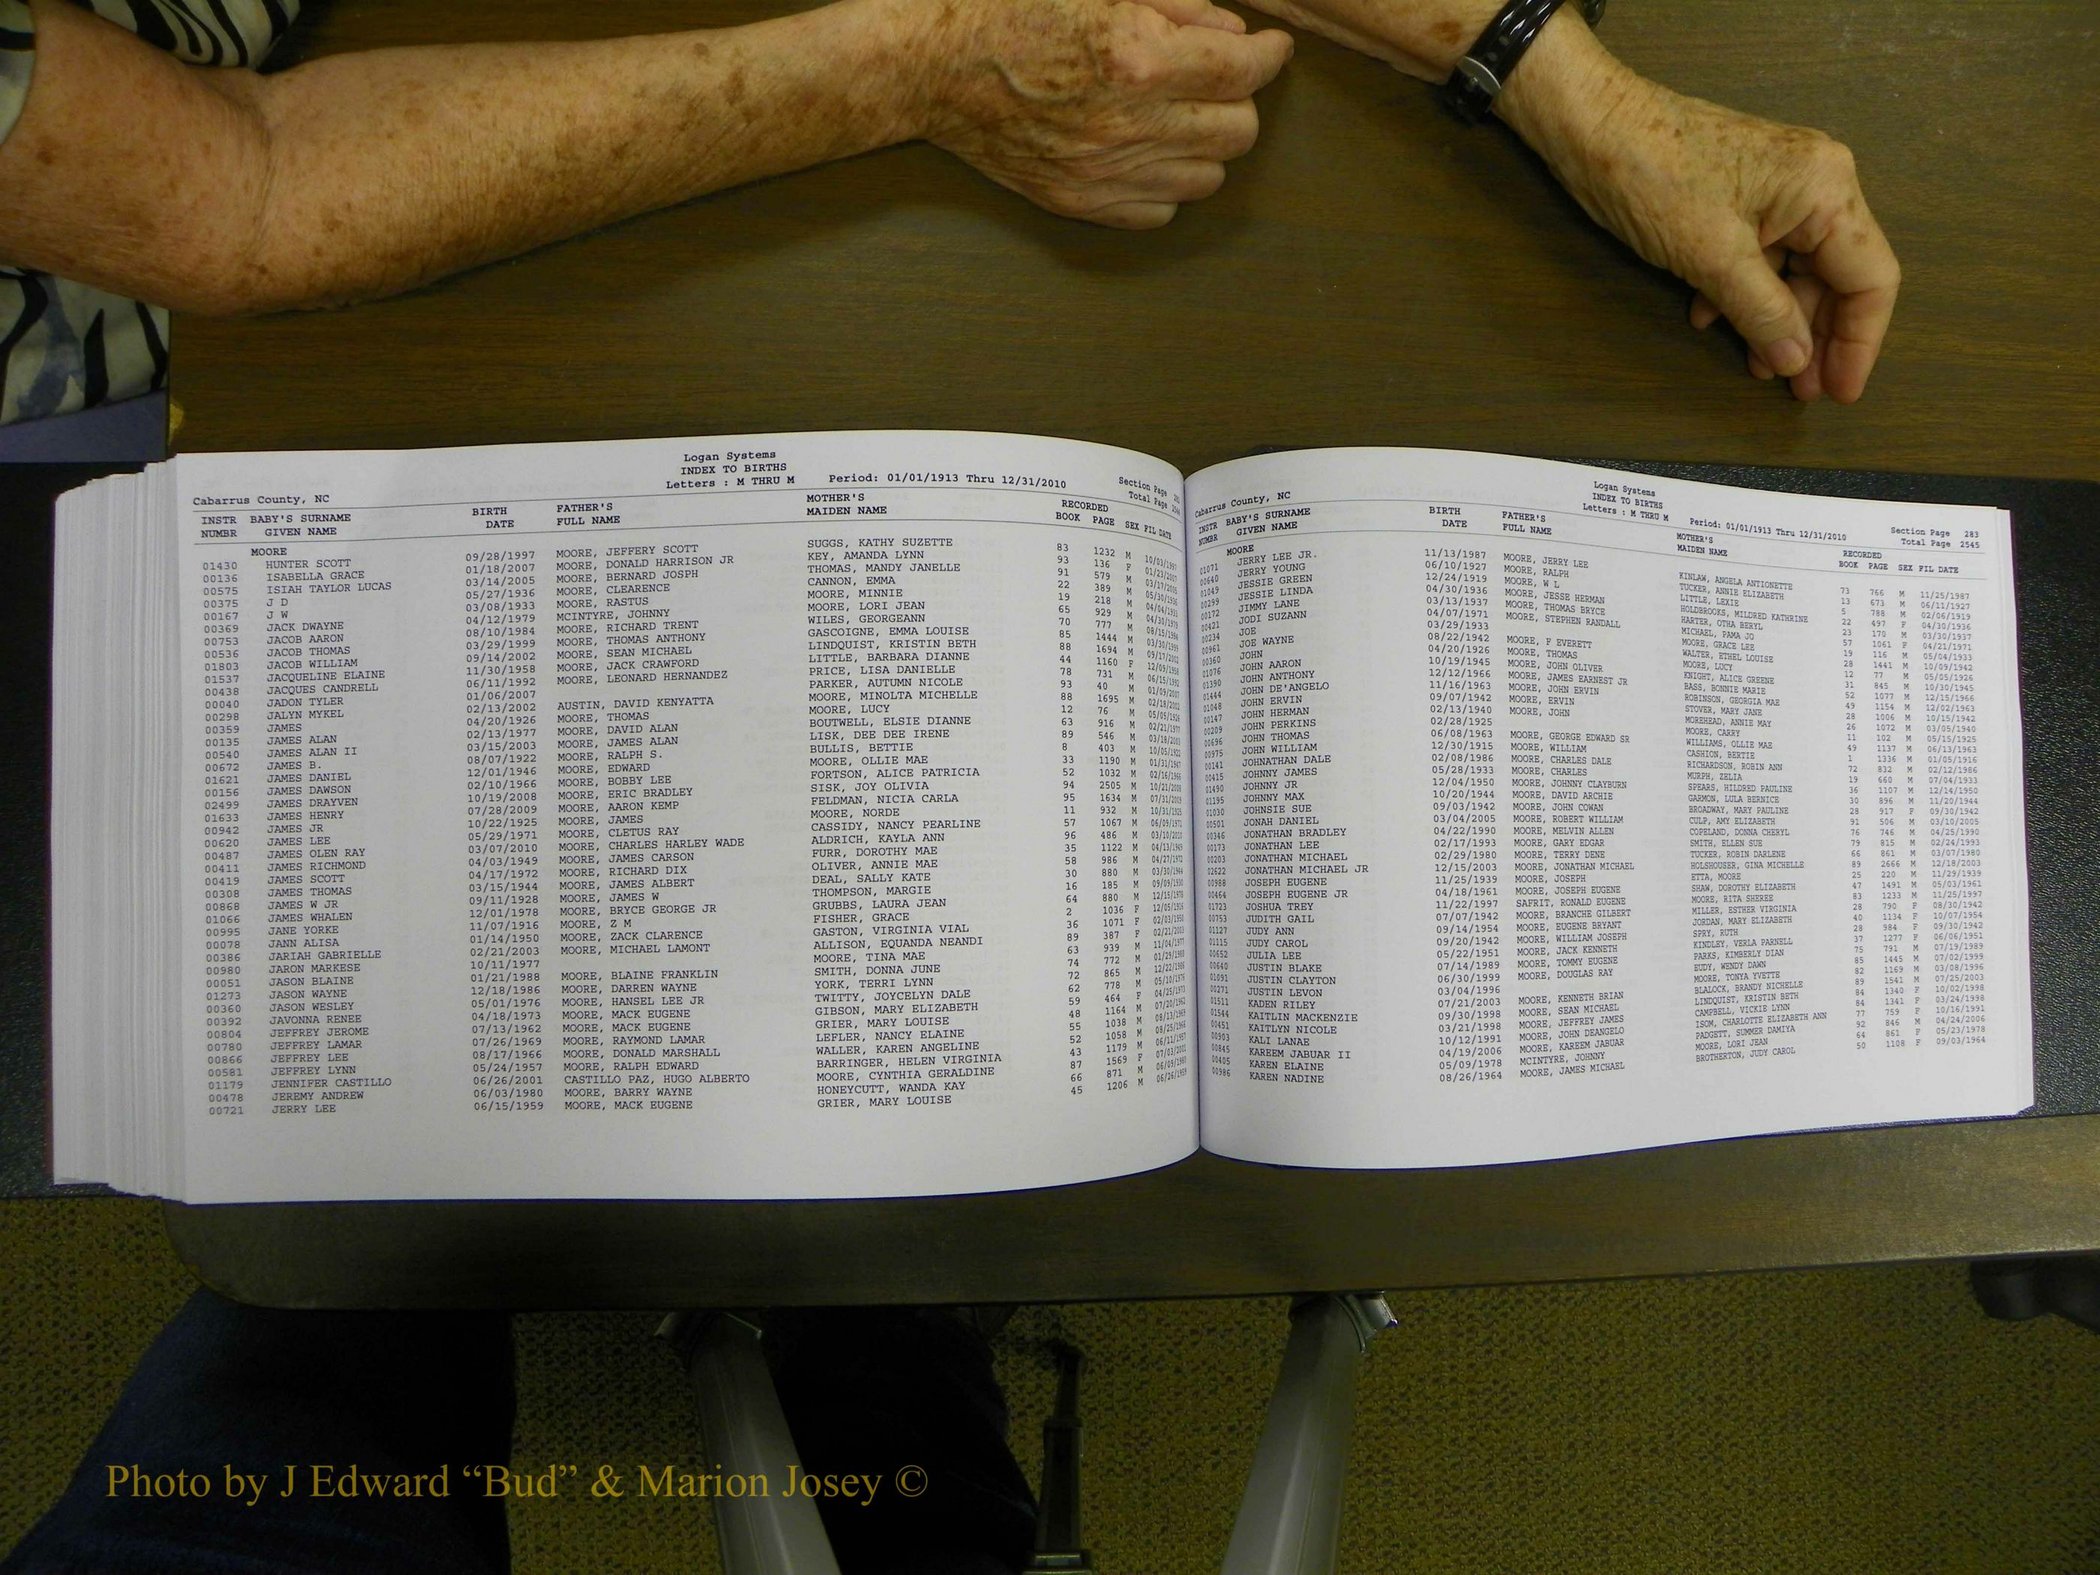 Logan Systems
INDEX TO BIRTHS
Cabarrus County, NC Letters : M THRU M Period: 01/01/1913 Thru 12/31/2010 Section Page
Total Page
INSTR BABY'S SURNAME BIRTH FATHER'S MOTHER'S RECORDED
NUMBR GIVEN NAME DATE FULL NAME MAIDEN NAME BOOK PAGE SEX FIL DATE
MOORE
01430 HUNTER SCOTT 09/28/1997 MOORE, JEFFERY SCOTT SUGGS, KATHY SUZETTE 83 1232 M 10/03/1997
00136 ISABELLA GRACE 01/18/2007 MOORE, DONALD HARRISON JR KEY, AMANDA LYNN 93 136 F 01/23/2007
00575 ISIAH TAYLOR LUCAS 03/14/2005 MOORE, BERNARD JOSPH THOMAS, MANDY JANELLE 91 579 M 03/17/2005
00375 J D 05/27/1936 MOORE, CLEARENCE CANNON, EMMA 22 389 M 05/30/1936
00167 J W 03/08/1933 MOORE, RASTUS MOORE, MINNIE 19 218 M
00369 JACK DWAYNE 04/12/1979 MCINTYRE, JOHNNY MOORE, LORI JEAN 65 929 M
00753 JACOB AARON 08/10/1984 MOORE, RICHARD TRENT WILES, GEORGEANN 70 777 M
00536 JACOB THOMAS 03/29/1999 MOORE, THOMAS ANTHONY GASCOIGNE, EMMA LOUISE 85 1444 M
01803 JACOB WILLIAM 09/14/2002 MOORE, SEAN MICHAEL LINDQUIST, KRISTIN BETH 88 1694 M
01537 JACQUELINE ELAINE 11/30/1958 MOORE, JACK CRAWFORD LITTLE, BARBARA DIANNE 44 1160 F
00438 JACQUES CANDRELL 06/11/1992 MOORE, LEONARD HERNANDEZ PRICE, LISA DANIELLE 78 731 M
00040 JADON TYLER 01/06/2007 PARKER, AUTUMN NICOLE 93 40 M
00298 JALYN MYKEL 02/13/2002 AUSTIN, DAVID KENYATTA MOORE, MINOLTA MICHELLE 88 1695 M
00359 JAMES 04/20/1926 MOORE, THOMAS MOORE, LUCY 12 76 M
00135 JAMES ALAN 02/13/1977 MOORE, DAVID ALAN BOUTWELL, ELSIE DIANNE 63 916 M
00540 JAMES ALAN II 03/15/2003 MOORE, JAMES ALAN LISK, DEE DEE IRENE 89 546 M
00672 JAMES B. 08/07/1922 MOORE, RALPH S. BULLIS, BETTIE 8 403 M
01621 JAMES DANIEL 12/01/1946 MOORE, EDWARD MOORE, OLLIE MAE 33 1190 M
00156 JAMES DAWSON 02/10/1966 MOORE, BOBBY LEE FORTSON, ALICE PATRICIA 52 1032 M
02499 JAMES DRAYVEN 10/19/2008 MOORE, ERIC BRADLEY SISK, JOY OLIVIA 94 2505 M
01633 JAMES HENRY 07/28/2009 MOORE, AARON KEMP FELDMAN, NICIA CARLA 95 1634 M
00942 JAMES JR 10/22/1925 MOORE, JAMES MOORE, NORDE 11 932 M
00620 JAMES LEE 05/29/1971 MOORE, CLETUS RAY CASSIDY, NANCY PEARLINE 57 1067 M
00487 JAMES OLEN RAY 03/07/2010 MOORE, CHARLES HARLEY WADE ALDRICH, KAYLA ANN 96 486 M
00411 JAMES RICHMOND 04/03/1949 MOORE, JAMES CARSON FURR, DOROTHY MAE 35 1122 M
00419 JAMES SCOTT 04/17/1972 MOORE, RICHARD DIX OLIVER, ANNIE MAE 58 986 M
00308 JAMES THOMAS 03/15/1944 MOORE, JAMES ALBERT DEAL, SALLY KATE 30 880 M
00868 JAMES W JR 09/11/1928 MOORE, JAMES W THOMPSON, MARGIE 16 185 M
01066 JAMES WHALEN 12/01/1978 MOORE, BRYCE GEORGE JR GRUBBS, LAURA JEAN 64 880 M
00995 JANE YORKE 11/07/1916 MOORE, Z M FISHER, GRACE 2 1036 F
00078 JANN ALISA 01/14/1950 MOORE, ZACK CLARENCE GASTON, VIRGINIA VIAL 36 1071 F
00386 JARIAH GABRIELLE 02/21/2003 MOORE, MICHAEL LAMONT ALLISON, EQUANDA NEANDI 89 387 F
00980 JARON MARKESE 10/11/1977 MOORE, TINA MAE 63 939 M
00051 JASON BLAINE 01/21/1988 MOORE, BLAINE FRANKLIN SMITH, DONNA JUNE 74 772 M
01273 JASON WAYNE 12/18/1986 MOORE, DARREN WAYNE YORK, TERRI LYNN 72 865 M
00360 JASON WESLEY 05/01/1976 MOORE, HANSEL LEE JR TWITTY, JOYCELYN DALE 62 778 M
00392 JAVONNA RENEE 04/18/1973 MOORE, MACK EUGENE GIBSON, MARY ELIZABETH 59 464 F
00804 JEFFREY JEROME 07/13/1962 MOORE, MACK EUGENE GRIER, MARY LOUISE 48 1164 M
00780 JEFFREY LAMAR 07/26/1969 MOORE, RAYMOND LAMAR LEFLER, NANCY ELAINE 55 1038 M
00866 JEFFREY LEE 08/17/1966 MOORE, DONALD MARSHALL WALLER, KAREN ANGELINE 52 1058 M
00581 JEFFREY LYNN 05/24/1957 MOORE, RALPH EDWARD BARRINGER, HELEN VIRGINIA 43 1179 M
01179 JENNIFER CASTILLO 06/26/2001 CASTILLO PAZ, HUGO ALBERTO MOORE, CYNTHIA GERALDINE 87 1569 F
00478 JEREMY ANDREW 06/03/1980 MOORE, BARRY WAYNE HONEYCUTT, WANDA KAY 66 871 M
00721 JERRY LEE 06/15/1959 MOORE, MACK EUGENE GRIER, MARY LOUISE 45 1206 M
Logan Systems
INDEX TO BIRTHS
Cabarrus County, NC Letters : M THRU M Period: 01/01/1913 Thru 12/31/2010 Section Page 283
Total Page 2545
INSTR BABY'S SURNAME BIRTH FATHER'S MOTHER'S RECORDED
NUMBR GIVEN NAME DATE FULL NAME MAIDEN NAME BOOK PAGE SEX FIL DATE
MOORE
01071 JERRY LEE JR. 11/13/1987 MOORE, JERRY LEE KINLAW, ANGELA ANTIONETTE 73 766 M 11/25/1987
00640 JERRY YOUNG 06/10/1927 MOORE, RALPH TUCKER, ANNIE ELIZABETH 13 673 M 06/11/1927
01049 JESSIE GREEN 12/24/1919 MOORE, W L LITTLE, LEXIE 5 788 M 02/06/1919
00299 JESSIE LINDA 04/30/1936 MOORE, JESSE HERMAN HOLDBROOKS, MILDRED KATHRINE 22 497 F 04/30/1936
00172 JIMMY LANE 03/13/1937 MOORE, THOMAS BRYCE HARTER, OTHA BERYL 23 170 M 03/30/1937
00421 JODI SUZANN 04/07/1971 MOORE, STEPHEN RANDALL MICHAEL, PAMA JO 57 1061 F 04/21/1971
00234 JOE 03/29/1933 MOORE, GRACE LEE 19 116 M 05/04/1933
00961 JOE WAYNE 08/22/1942 MOORE, F EVERETT WALTER, ETHEL LOUISE 28 1441 M 10/09/1942
00360 JOHN 04/20/1926 MOORE, THOMAS MOORE, LUCY 12 77 M 05/05/1926
01076 JOHN AARON 10/19/1945 MOORE, JOHN OLIVER KNIGHT, ALICE GREENE 31 845 M 10/30/1945
01390 JOHN ANTHONY 12/12/1966 MOORE, JAMES EARNEST JR BASS, BONNIE MARIE 52 1077 M 12/15/1966
01444 JOHN DE'ANGELO 11/16/1963 MOORE, JOHN ERVIN ROBINSON, GEORGIA MAE 49 1154 M 12/02/1963
01048 JOHN ERVIN 09/07/1942 MOORE, ERVIN STOVER, MARY JANE 28 1006 M 10/15/1942
00147 JOHN HERMAN 02/13/1940 MOORE, JOHN MOREHEAD, ANNIE MAY 26 1072 M 03/05/1940
00209 JOHN PERKINS 02/28/1925 MOORE, CARRY 11 102 M 05/15/1925
00696 JOHN THOMAS 06/08/1963 MOORE, GEORGE EDWARD SR WILLIAMS, OLLIE MAE 49 1137 M 06/13/1963
00975 JOHN WILLIAM 12/30/1915 MOORE, WILLIAM CASHION, BERTIE 1 1336 M 01/05/1916
00141 JOHNATHAN DALE 02/08/1986 MOORE, CHARLES DALE RICHARDSON, ROBIN ANN 72 832 M 02/12/1986
00415 JOHNNY JAMES 05/28/1933 MOORE, CHARLES MURPH, ZELIA 19 660 M 07/04/1933
01490 JOHNNY JR 12/04/1950 MOORE, JOHNNY CLAYBURN SPEARS, HILDRED PAULINE 36 1107 M 12/14/1950
01195 JOHNNY MAX 10/20/1944 MOORE, DAVID ARCHIE GARMON, LULA BERNICE 30 896 M 11/20/1944
01030 JOHNSIE SUE 09/03/1942 MOORE, JOHN COWAN BROADWAY, MARY PAULINE 28 917 F 09/30/1942
00501 JONAH DANIEL 03/04/2005 MOORE, ROBERT WILLIAM CULP, AMY ELIZABETH 91 506 M 03/10/2005
00346 JONATHAN BRADLEY 04/22/1990 MOORE, MELVIN ALLEN COPELAND, DONNA CHERYL 76 746 M 04/25/1990
00173 JONATHAN LEE 02/17/1993 MOORE, GARY EDGAR SMITH, ELLEN SUE 79 815 M 02/24/1993
00203 JONATHAN MICHAEL 02/29/1980 MOORE, TERRY DENE TUCKER, ROBIN DARLENE 66 861 M 03/07/1980
02622 JONATHAN MICHAEL JR 12/15/2003 MOORE, JONATHAN MICHAEL HOLSHOUSER, GINA MICHELLE 89 2666 M 12/18/2003
00988 JOSEPH EUGENE 11/25/1939 MOORE, JOSEPH ETTA, MOORE 25 220 M 11/29/1939
00464 JOSEPH EUGENE JR 04/18/1961 MOORE, JOSEPH EUGENE SHAW, DOROTHY ELIZABETH 47 1491 M 05/03/1961
01723 JOSHUA TREY 11/22/1997 SAFRIT, RONALD EUGENE MOORE, RITA SHEREE 83 1233 M 11/25/1997
00753 JUDITH GAIL 07/07/1942 MOORE, BRANCHE GILBERT MILLER, ESTHER VIRGINIA 28 790 F 08/30/1942
01127 JUDY ANN 09/14/1954 MOORE, EUGENE BRYANT JORDAN, MARY ELIZABETH 40 1134 F 10/07/1954
01115 JUDY CAROL 09/20/1942 MOORE, WILLIAM JOSEPH SPRY, RUTH 28 984 F 09/30/1942
00652 JULIA LEE 05/22/1951 MOORE, JACK KENNETH KINDLEY, VERLA PARNELL 37 1277 F 06/06/1951
00640 JUSTIN BLAKE 07/14/1989 MOORE, TOMMY EUGENE PARKS, KIMBERLY DIAN 75 791 M 07/19/1989
01091 JUSTIN CLAYTON 06/30/1999 MOORE, DOUGLAS RAY EUDY, WENDY DAWN 85 1445 M 07/02/1999
00271 JUSTIN LEVON 03/04/1996 MOORE, TONYA YVETTE 82 1169 M 03/08/1996
01511 KADEN RILEY 07/21/2003 MOORE, KENNETH BRIAN BLALOCK, BRANDY NICHELLE 89 1541 M 07/25/2003
01544 KAITLIN MACKENZIE 09/30/1998 MOORE, SEAN MICHAEL LINDQUIST, KRISTIN BETH 84 1340 F 10/02/1998
00451 KAITLYN NICOLE 03/21/1998 MOORE, JEFFREY JAMES CAMPBELL, VICKIE LYNN 84 1341 F 03/24/1998
00903 KALI LANAE 10/12/1991 MOORE, JOHN DEANGELO ISOM, CHARLOTTE ELIZABETH ANN 77 759 F 10/16/1991
00845 KAREEM JABUAR II 04/19/2006 MOORE, KAREEM JABUAR PADGETT, SUMMER DAMIYA 92 846 M 04/24/2006
00405 KAREN ELAINE 05/09/1978 MCINTYRE, JOHNNY MOORE, LORI JEAN 64 861 F 05/23/1978
00986 KAREN NADINE 08/26/1964 MOORE, JAMES MICHAEL BROTHERTON, JUDY CAROL 50 1108 F 09/03/1964
Photo by J Edward “Bud” & Marion Josey ©